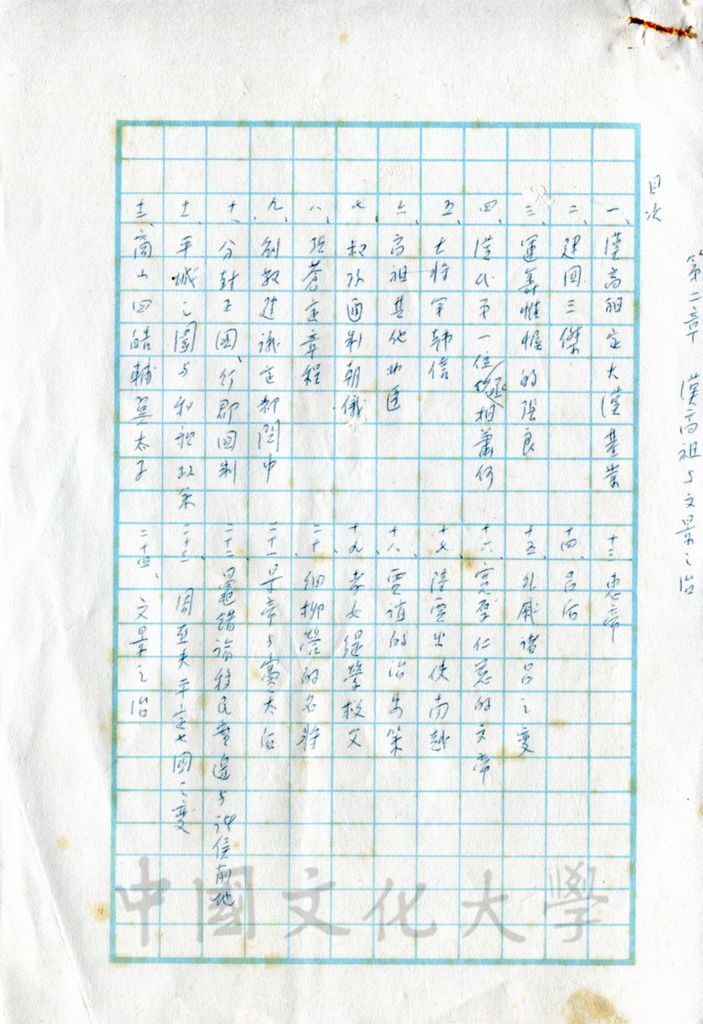 第二章 漢高祖与文景之治
目次
一、漢高祖定大漢基業
二、建國三傑
三、運籌帷幄的張良
四、漢代第一位丞相蕭何
五、大將軍韓信
六、高祖其他功臣
七、叔孫通制朝儀
八、張蒼定章程
九、劉敬建議定都関中
十、分封王國、行郡國制
十一、平城之圍与和親政策
十二、商山四皓輔翼太子
十三、惠帝
十四、呂后
十五、外戚諸呂之變
十六、寬厚仁慈的文帝
十七、陸賈出使南越
十八、賈誼的治安策
十九、孝女緹縈救父
二十、細柳營的名將
二十一、景帝与竇太后
二十二、鼂錯論移民實邊与諸侯削地
二十三、周亞夫平定七國之變
二十四、文景之治
中國文化大學